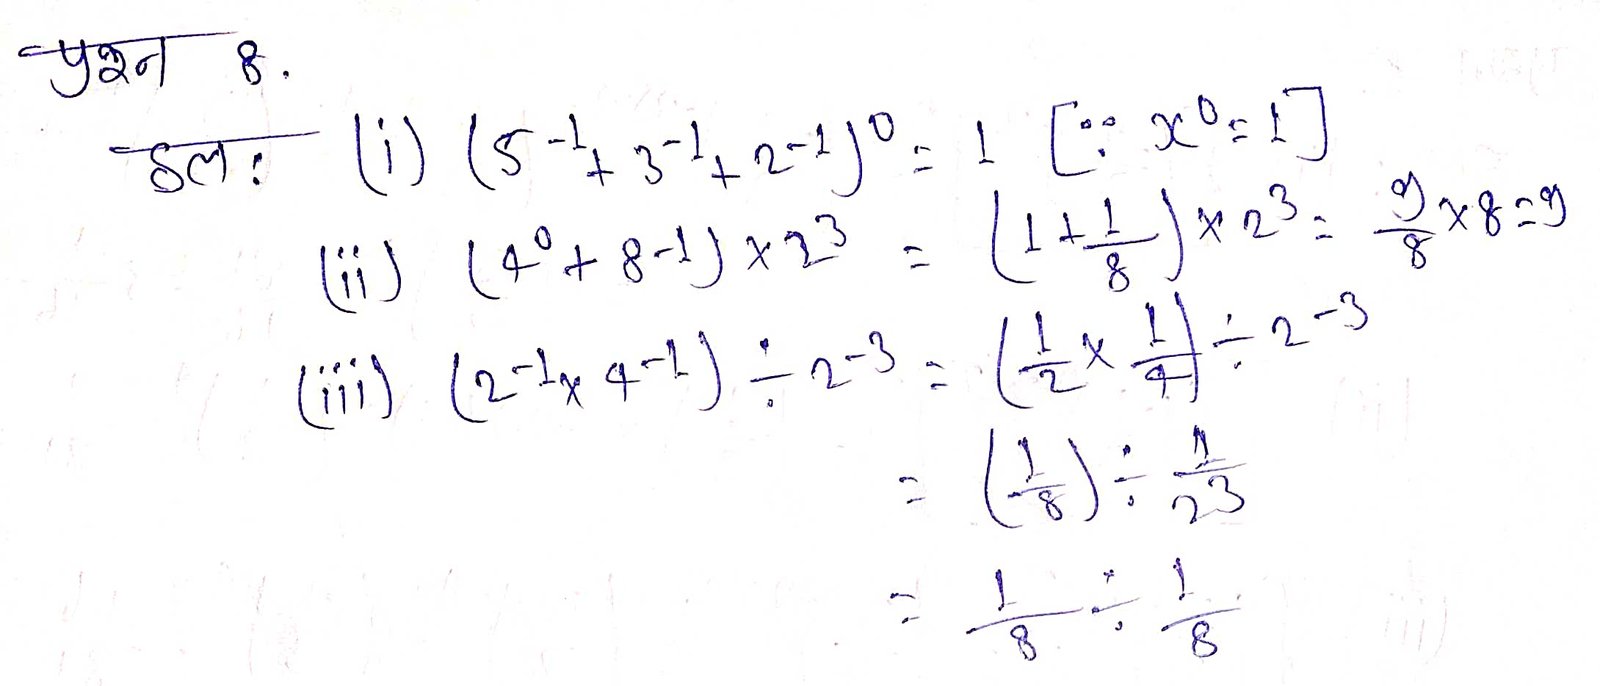 प्रश्न 8.
हल: (i) (5⁻¹ + 3⁻¹ + 2⁻¹)⁰ = 1 [∵ x⁰ = 1]
(ii) (4⁰ + 8-1) × 2³ = (1 + 1/8) × 2³ = 9/8 × 8 = 9
(iii) (2⁻¹ × 4⁻¹) ÷ 2⁻³ = (1/2 × 1/4) ÷ 2⁻³
= (1/8) ÷ 1/2³
= 1/8 ÷ 1/8